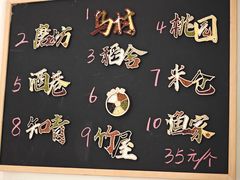 1 马村
2 磨坊
3 稻舍
4 桃园
5 酒巷
6
7 米仓
8 知青
9 竹屋
10 渔家
35元/个